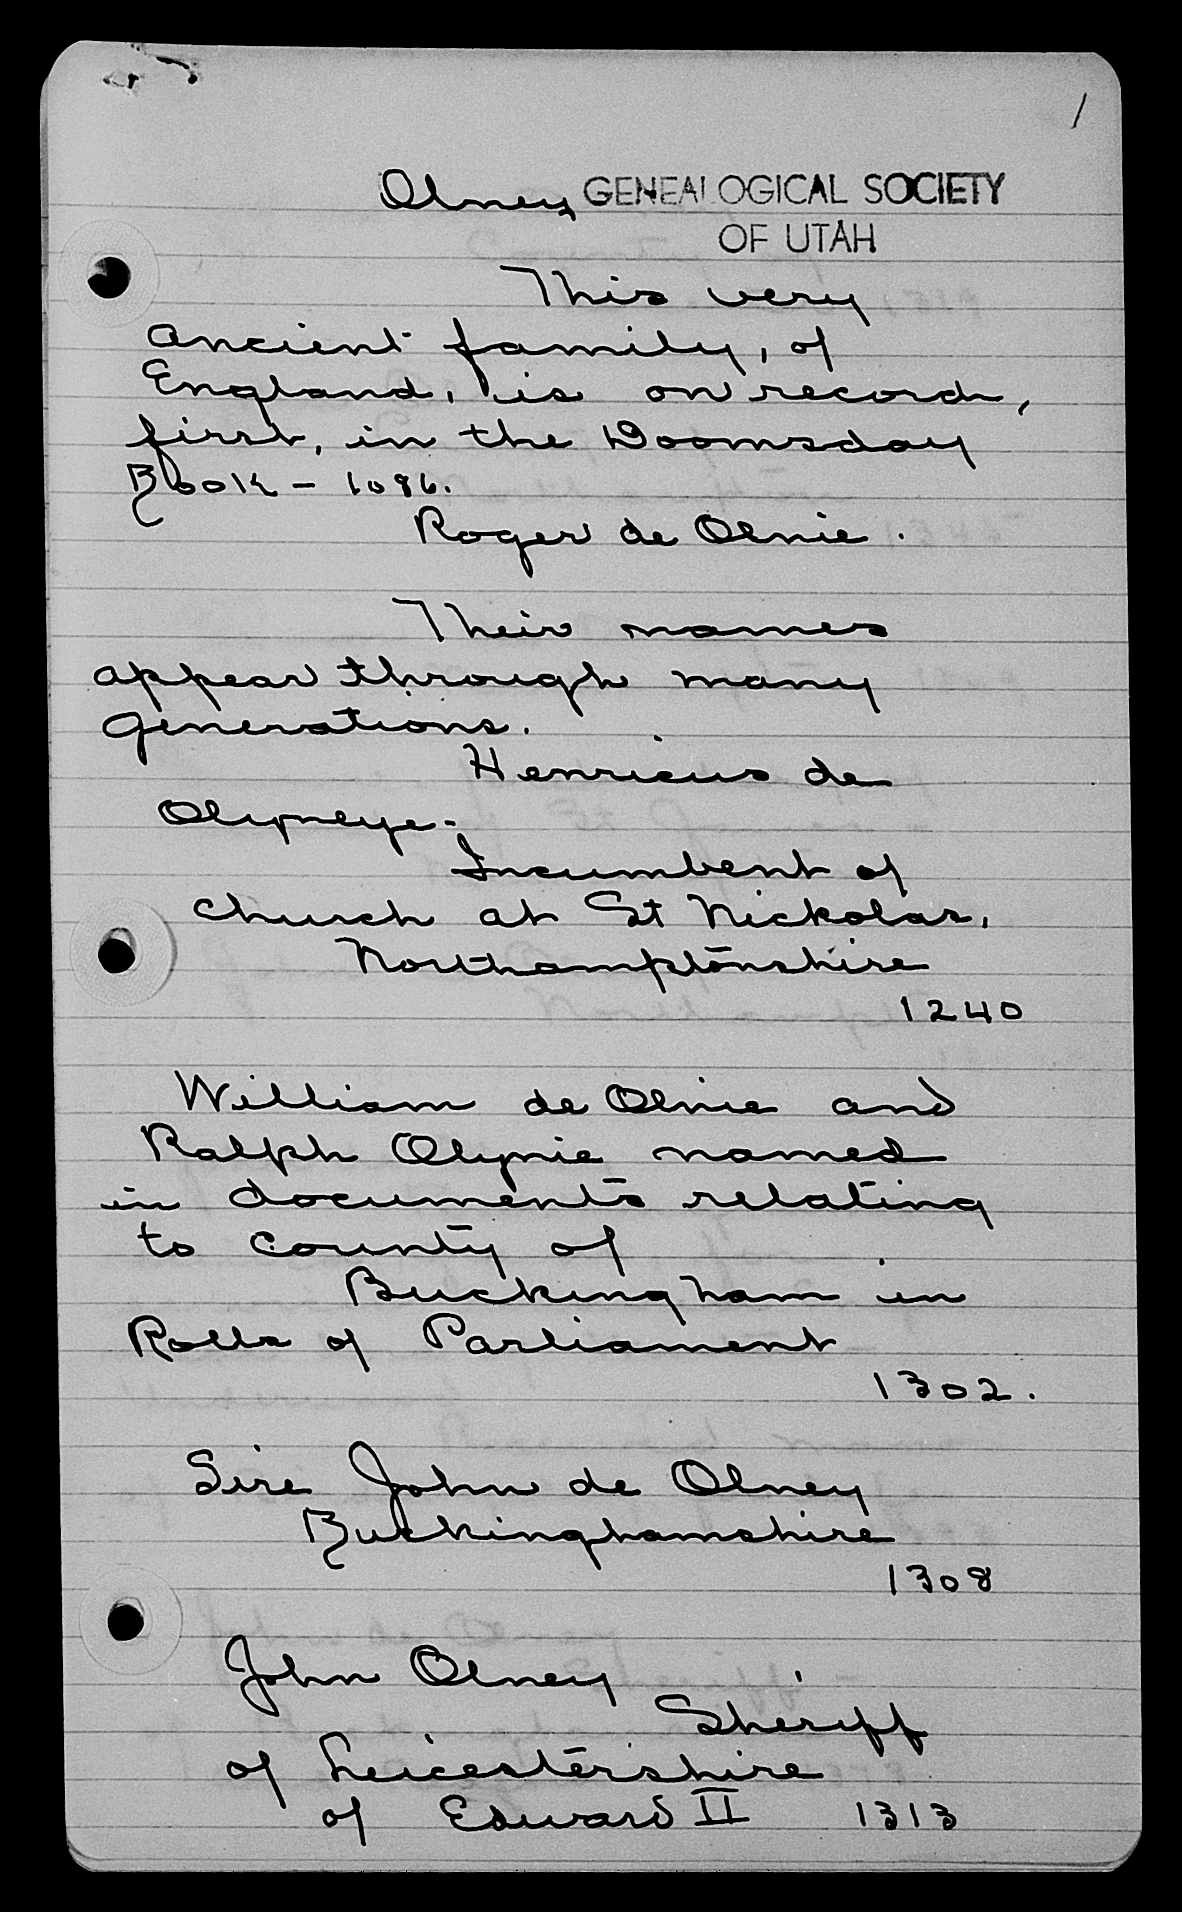 1
Olney GENEALOGICAL SOCIETY
OF UTAH
This very
ancient family, of
England, is on record,
first, in the Doomsday
Book - 1086.
Roger de Olnie.
Their names
appear through many
generations.
Henricus de
Olyneye-
Incumbent of
church at St Nickolas,
Northamptonshire
1240
William de Olnie and
Ralph Olynie named
in documents relating
to county of
Buckingham in
Rolls of Parliament
1302.
Sire John de Olney
Buckinghamshire
1308
John Olney
Sheriff
of Leicestershire
of Edward II 1313